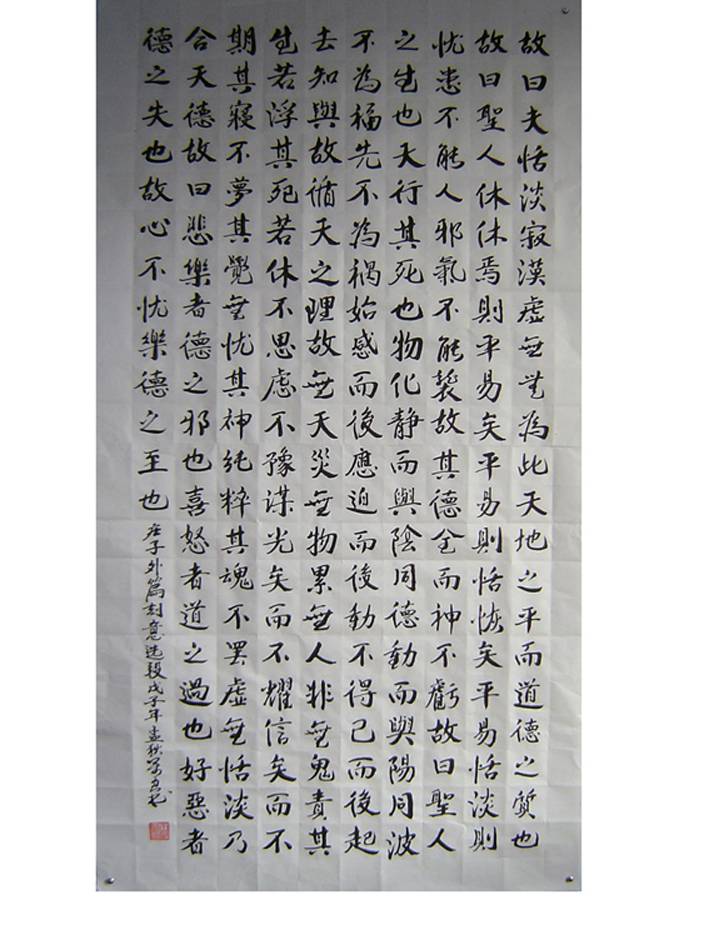 故曰夫恬淡寂漠虛無無為此天地之平而道德之質也
故曰聖人休休焉則平易矣平易則恬惔矣平易恬淡則
忧患不能入邪氣不能襲故其德全而神不虧故曰聖人
之生也天行其死也物化静而與陰同德動而與陽同波
不為福先不為禍始感而後應迫而後動不得已而後起
去知與故循天之理故無天災無物累無人非無鬼責其
生若浮其死若休不思慮不豫謀光矣而不耀信矣而不
期其寢不夢其覺無忧其神純粹其魂不罷虛無恬淡乃
合天德故曰悲樂者德之邪也喜怒者道之過也好惡者
德之失也故心不忧樂德之至也
庄子外篇刻意选段戊子年孟秋